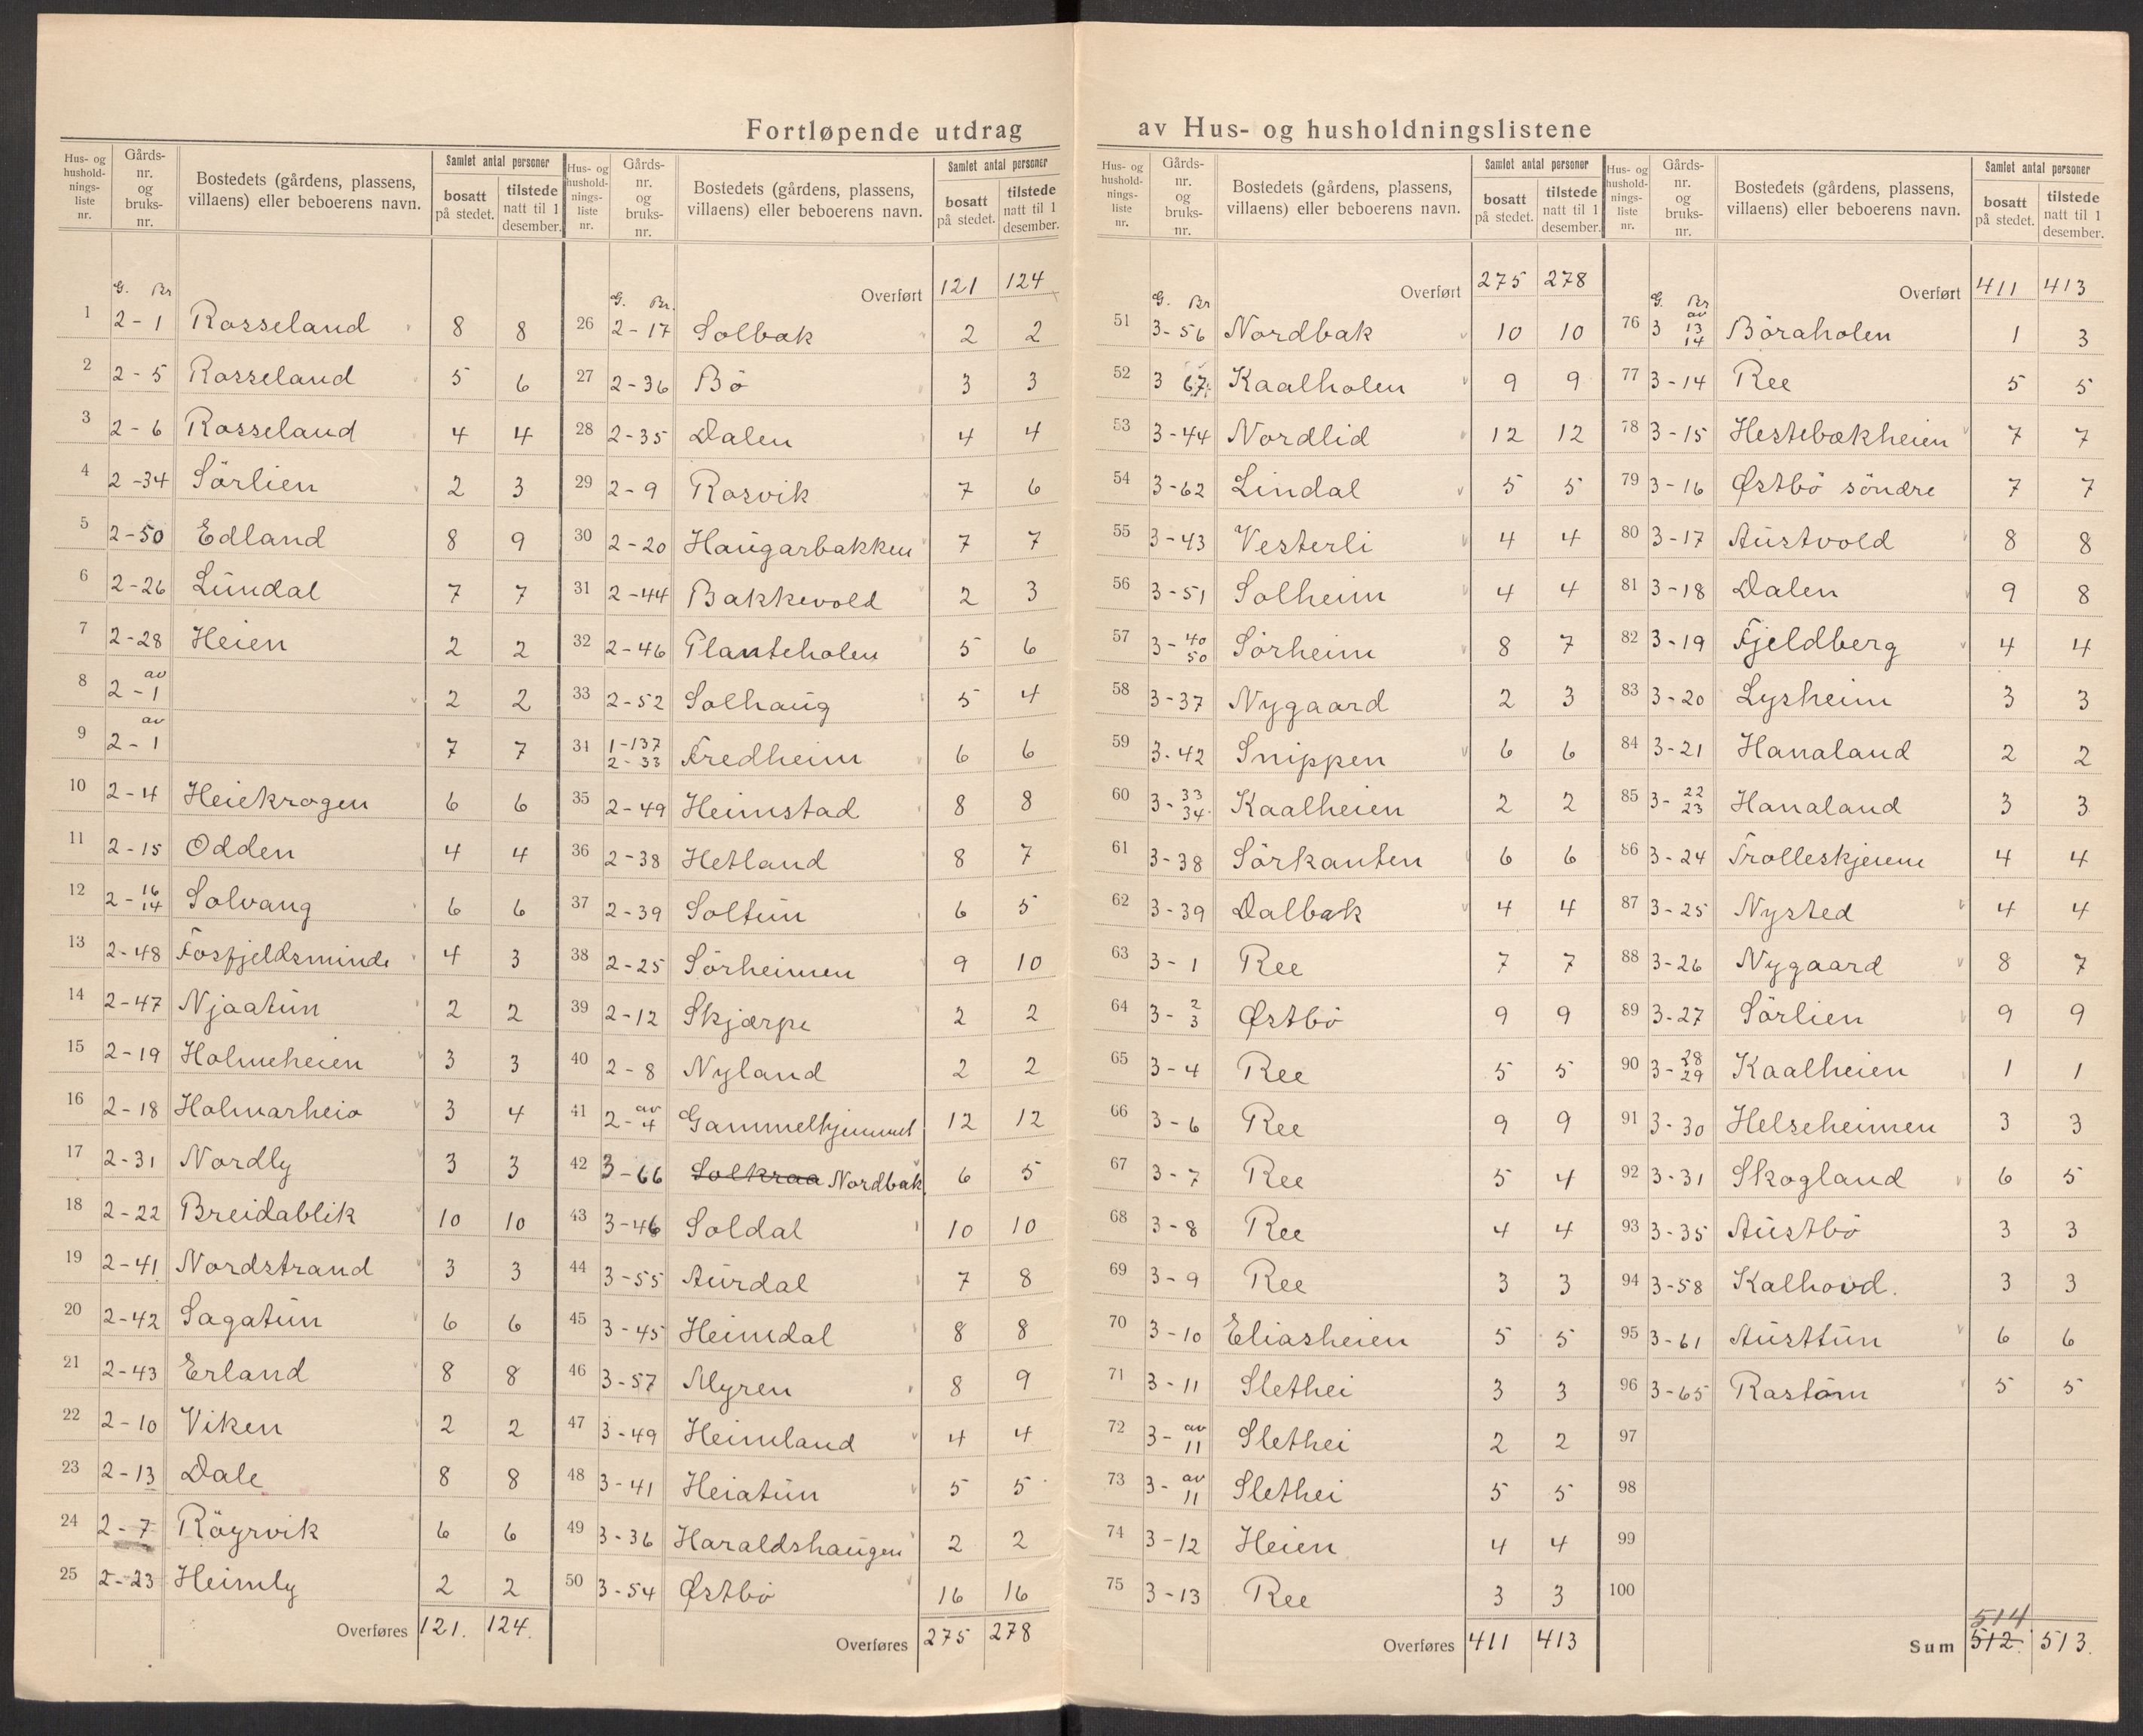 Fortløpende utdrag av Hus- og husholdningslistene
Hus- og hushold-nings-liste nr. Gårds-nr. og bruks-nr. Bostedets (gårdens, plassens, villaens) eller beboerens navn. Samlet antal personer bosatt på stedet. tilstede natt til 1 desember.
G. Br
1 2-1 Rosseland 8 8
2 2-5 Rosseland 5 6
3 2-6 Rosseland 4 4
4 2-34 Sörlien 2 3
5 2-50 Edland 8 9
6 2-26 Lundal 7 7
7 2-28 Heien 2 2
8 2-av 1 2 2
9 2-av 1 7 7
10 2-4 Heiekrogen 6 6
11 2-15 Odden 4 4
12 2-16 14 Solvang 6 6
13 2-48 Fosfjeldsminde 4 3
14 2-47 Njaatun 2 2
15 2-19 Holmeheien 3 3
16 2-18 Holmarheia 3 4
17 2-31 Nordly 3 3
18 2-22 Breidablik 10 10
19 2-41 Nordstrand 3 3
20 2-42 Sagatun 6 6
21 2-43 Erland 8 8
22 2-10 Viken 2 2
23 2-13 Dale 8 8
24 2-7 Röyrvik 6 6
25 2-23 Heimly 2 2
Overføres 121. 124.
Hus- og hushold-nings-liste nr. Gårds-nr. og bruks-nr. Bostedets (gårdens, plassens, villaens) eller beboerens navn. Samlet antal personer bosatt på stedet. tilstede natt til 1 desember.
Overført 121 124
G. Br.
26 2-17 Solbak 2 2
27 2-36 Bö 3 3
28 2-35 Dalen 4 4
29 2-9 Rosvik 7 6
30 2-20 Haugarbakken 7 7
31 2-44 Bakkevold 2 3
32 2-46 Planteholen 5 6
33 2-52 Solhaug 5 4
34 1-137 2-33 Fredheim 6 6
35 2-49 Heimstad 8 8
36 2-38 Hetland 8 7
37 2-39 Soltun 6 5
38 2-25 Sörheimen 9 10
39 2-12 Skjærpe 2 2
40 2-8 Nyland 2 2
41 2-av 4 Gammelhjemmet 12 12
42 3-66 Solkraa Nordbak 6 5
43 3-46 Soldal 10 10
44 3-55 Aurdal 7 8
45 3-45 Heimdal 8 8
46 3-57 Myren 8 9
47 3-49 Heimland 4 4
48 3-41 Heiatun 5 5
49 3-36 Haraldshaugen 2 2
50 3-54 Østbö 16 16
Overføres 275 278
Hus- og hushold-nings-liste nr. Gårds-nr. og bruks-nr. Bostedets (gårdens, plassens, villaens) eller beboerens navn. Samlet antal personer bosatt på stedet. tilstede natt til 1 desember.
Overført 275 278
G. Br
51 3-56 Nordbak 10 10
52 3 67 Kaalholen 9 9
53 3-44 Nordlid 12 12
54 3-62 Lindal 5 5
55 3-43 Vesterli 4 4
56 3-51 Solheim 4 4
57 3-40 50 Sörheim 8 7
58 3-37 Nygaard 2 3
59 3-42 Snippen 6 6
60 3-33 34 Kaalheien 2 2
61 3-38 Sörkanten 6 6
62 3-39 Dalbak 4 4
63 3-1 Ree 7 7
64 3-2 3 Østbö 9 9
65 3-4 Ree 5 5
66 3-6 Ree 9 9
67 3-7 Ree 5 4
68 3-8 Ree 4 4
69 3-9 Ree 3 3
70 3-10 Eliasheien 5 5
71 3-11 Slethei 3 3
72 3-av 11 Slethei 2 2
73 3-av 11 Slethei 5 5
74 3-12 Heien 4 4
75 3-13 Ree 3 3
Overføres 411 413
Hus- og hushold-nings-liste nr. Gårds-nr. og bruks-nr. Bostedets (gårdens, plassens, villaens) eller beboerens navn. Samlet antal personer bosatt på stedet. tilstede natt til 1 desember.
Overført 411 413
G. Br
76 3 av 13 14 Böraholen 1 3
77 3-14 Ree 5 5
78 3-15 Hestebækheien 7 7
79 3-16 Østbö söndre 7 7
80 3-17 Austvold 8 8
81 3-18 Dalen 9 8
82 3-19 Fjeldberg 4 4
83 3-20 Lysheim 3 3
84 3-21 Hanaland 2 2
85 3-22 23 Hanaland 3 3
86 3-24 Trolleskjeine 4 4
87 3-25 Nysted 4 4
88 3-26 Nygaard 8 7
89 3-27 Sörlien 9 9
90 3-28 29 Kaalheien 1 1
91 3-30 Helseheimen 3 3
92 3-31 Skogland 6 5
93 3-35 Austbö 3 3
94 3-58 Kalhovd. 3 3
95 3-61 Austtun 6 6
96 3-65 Rastöm 5 5
97
98
99
100
514
Sum 512. 513.